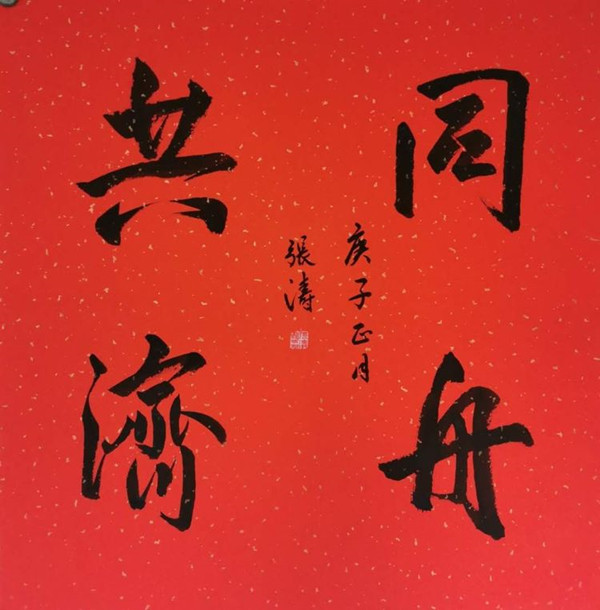 同舟
共濟
庚子正月
張濤